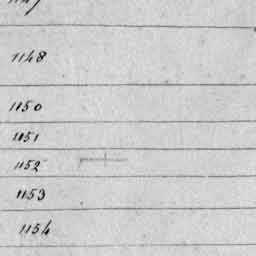 1148
1150
1151
1152
1153
1154